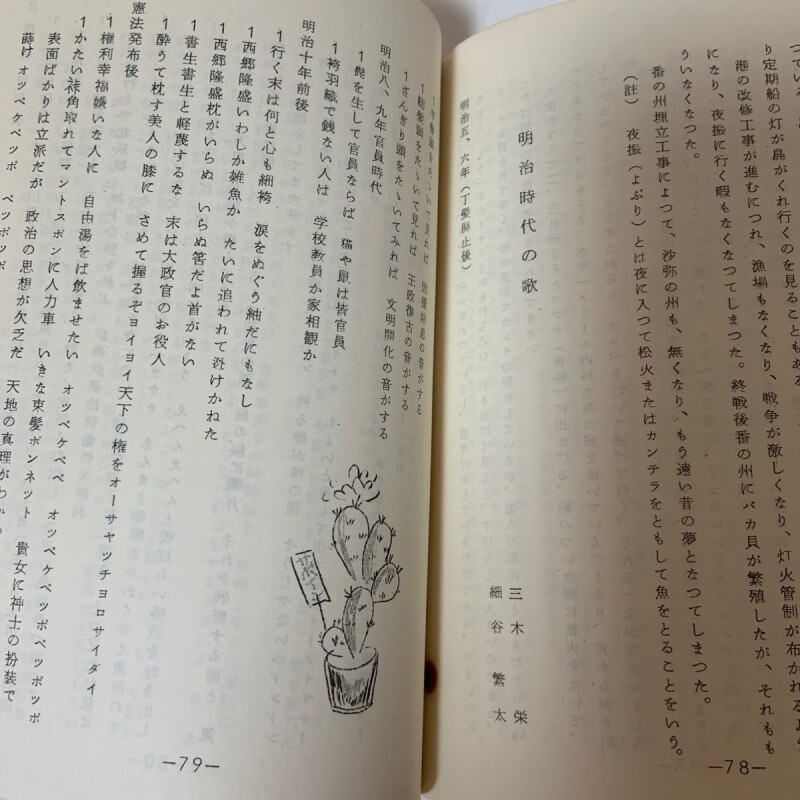 り定期船の灯が島がくれ行くのを見ることもある。
港の改修工事が進むにつれ、漁場もなくなり、戦争が激しくなり、灯火管制が布かれるよう
になり、夜振に行く暇もなくなつてしまつた。終戦後番の州にバカ貝が繁殖したが、それもも
ういなくなつた。
番の州埋立工事によつて、沙弥の州も、無くなり、もう遠い昔の夢となつてしまつた。
(註) 夜振(よぶり)とは夜に入つて松火またはカンテラをともして魚をとることをいう。
三木 栄
細谷 繁太
明治時代の歌
明治五、六年(丁髷廃止後)
—78—
1半髪頭をたゝいて見れば 因循姑息の音がする
1総髪頭をたゝいて見れば 王政復古の音がする
1ざんぎり頭をたゝいてみれば 文明開化の音がする
明治八、九年官員時代
1髭を生して官員ならば 猫や鼠は皆官員
1袴羽織で銭ない人は 学校教員か家相観か
明治十年前後
1行く末は何と心も細袴 涙をぬぐう紬だにもなし
1西郷隆盛いわしか雑魚か たいに追われて逃げかねた
1西郷隆盛枕がいらぬ いらぬ筈だよ首がない
1書生書生と軽蔑するな 末は大政官のお役人
1酔うて枕す美人の膝に さめて握るぞヨイヨイ天下の権をオーサヤッチヨロサイダイ
憲法発布後
1権利幸福嫌いな人に 自由湯をば飲ませたい オツペケペペ オツペケペッポペッポッポ
1かたい裃角取れてマントスボンに人力車 いきな束髪ボンネット 貴女に神士の扮装で
表面ばかりは立派だが 政治の思想が欠乏だ 天地の真理がわか
蒔け オツペケペッポ ペッポッポ
サボテン
—79—